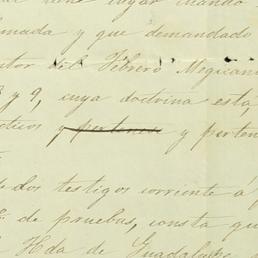 lugar cuando
y que demandado
del Febrero Megicano
y 9, cuya doctrina esta
y pertenece y perten
dos testigos corriente á
de pruebas, consta qu
Hda de Guadalupe